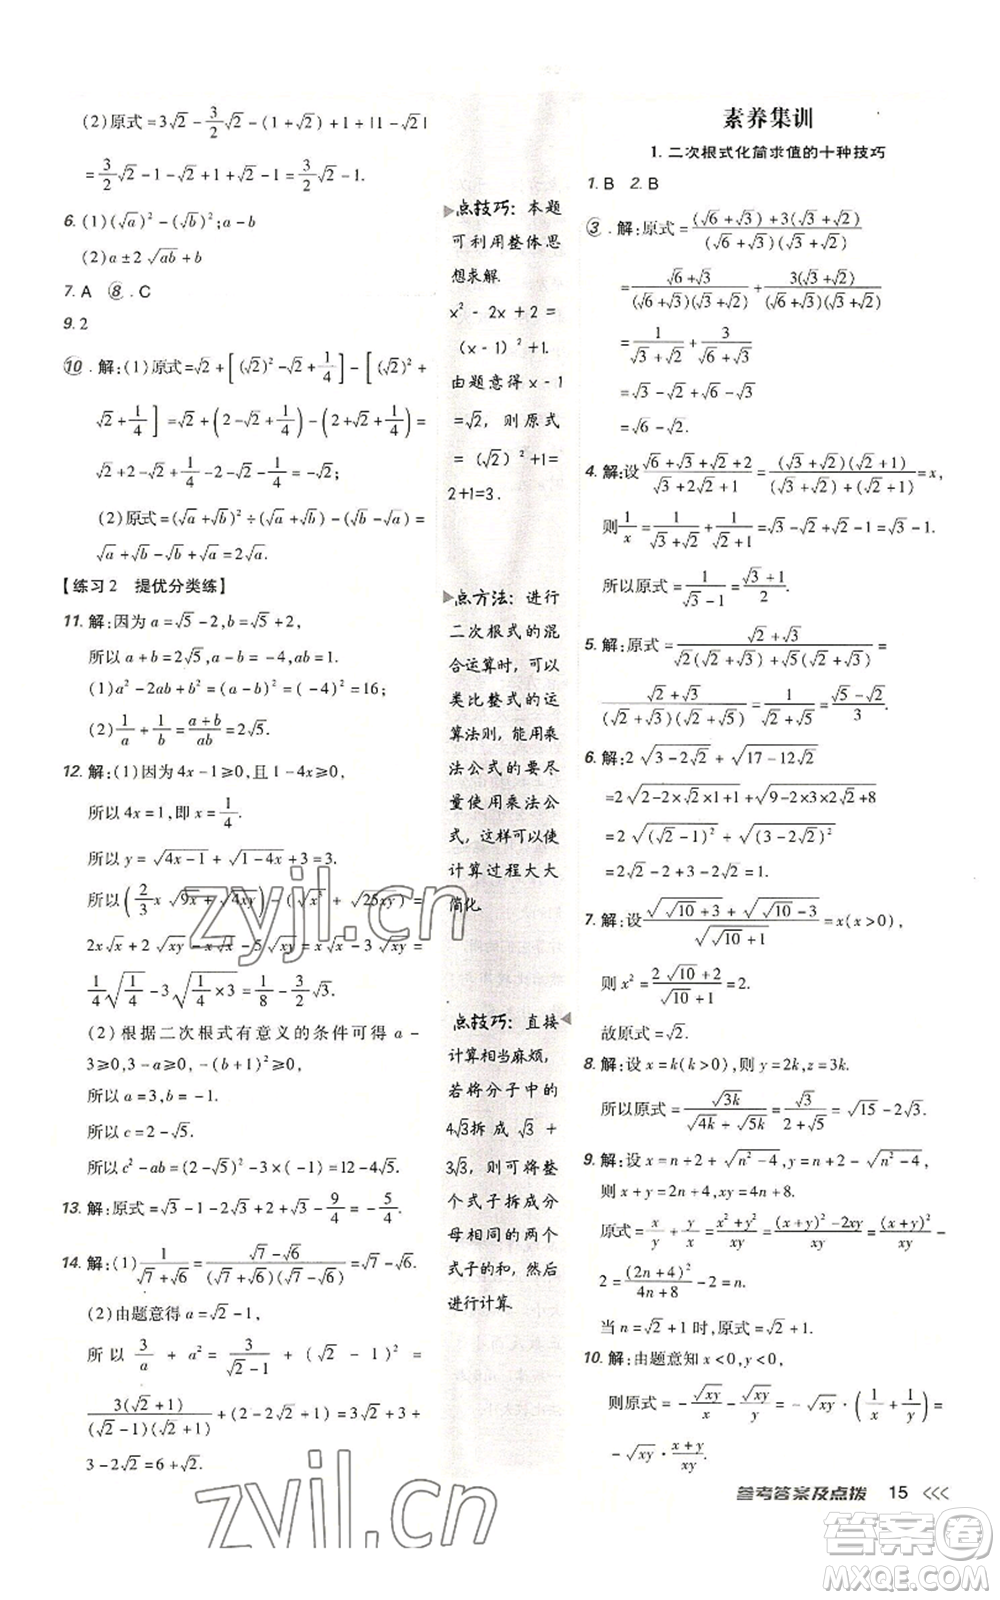 (2)原式=3√2-3/2√2-(1+√2)+|1-√2|
=3/2√2-1-√2+√2-1=3/2√2-2.
6.(1)(√a)²-(√b)²;a-b
(2)a±2√ab+b
7.A ⑧.C
9.2
⑩.解:(1)原式=√2+[(√2)²-√2+1/4]-[(√2)²+
√2+1/4]=√2+(2-√2+1/4)-(2+√2+1/4)=
√2+2-√2+1/4-2-√2-1/4=-√2;
(2)原式=(√a+√b)²÷(√a+√b)-(√b-√a)=
√a+√b-√b+√a=2√a.
【练习2 提优分类练】
11.解:因为a=√5-2,b=√5+2,
所以a+b=2√5,a-b=-4,ab=1.
(1)a²-2ab+b²=(a-b)²=(-4)²=16;
(2)1/a+1/b=(a+b)/ab=2√5.
12.解:(1)因为4x-1≥0,且1-4x≥0,
所以4x=1,即x=1/4.
所以y=√(4x-1)+√(1-4x)+3=3.
2x√x+√xy-x√x-5√xy=x√x-4√xy=
(2)根据二次根式有意义的条件可得a-
3≥0,3-a≥0,
所以a=3,b=-1.
所以c=2-√5.
所以c²-ab=(2-√5)²-3×(-1)=12-4√5.
13.解:原式=√3-1-2√3+2+√3-9/4=-5/4.
14.解:(1)1/(√7+√6)=(√7-√6)/((√7+√6)(√7-√6))=√7-√6.
(2)由题意得a=√2-1,
所以3/a+a²=3/(√2-1)+(√2-1)²=
3(√2+1)/((√2-1)(√2+1))+(2-2√2+1)=3√2+3+
3-2√2=6+√2.
点技巧:本题
可利用整体思
想求解.
x²-2x+2=
(x-1)²+1.
由题意得x-1
=√2,则原式
=(√2)²+1=
2+1=3.
点方法:进行
二次根式的混
合运算时,可以
类比整式的运
算法则,能用乘
法公式的要尽
量使用乘法公
式,这样可以使
计算过程大大
简化.
点技巧:直接
计算相当麻烦,
若将分子中的
4√3拆成√3+
3√3,则可将整
个式子拆成分
母相同的两个
式子的和,然后
进行计算.
素养集训
1.二次根式化简求值的十种技巧
1.B 2.B
③.解:原式=((√6+√3)+3(√3+√2))/((√6+√3)(√3+√2))
=(√6+√3)/((√6+√3)(√3+√2))+3(√3+√2)/((√6+√3)(√3+√2))
=1/(√3+√2)+3/(√6+√3)
=√3-√2+√6-√3
=√6-√2.
4.解:设(√6+√3+√2+2)/(√3+2√2+1)=(√3+√2)(√2+1)/((√3+√2)+(√2+1))=x,
则1/x=1/(√3+√2)+1/(√2+1)=√3-√2+√2-1=√3-1.
所以原式=1/(√3-1)=(√3+1)/2.
5.解:原式=(√2+√3)/(√2(√2+√3)+√5(√2+√3))=
(√2+√3)/((√2+√3)(√2+√5))=1/(√2+√5)=(√5-√2)/3.
6.解:2√(3-2√2)+√(17-12√2)
=2√(2-2×√2+1)+√(9-2×3×2√2+8)
=2√(√2-1)²+√(3-2√2)²
=2√2-2+3-2√2=1.
7.解:设(√(√10+3)+√(√10-3))/√(√10+1)=x(x>0),
则x²=(2√10+2)/(√10+1)=2.
故原式=√2.
8.解:设x=k(k>0),则y=2k,z=3k.
所以原式=√3k/(√4k+√5k)=√3/(2+√5)=√15-2√3.
9.解:设x=n+2+√(n²-4),y=n+2-√(n²-4),
则x+y=2n+4,xy=4n+8.
原式=x/y+y/x=(x²+y²)/xy=((x+y)²-2xy)/xy=(x+y)²/xy-
2=(2n+4)²/(4n+8)-2=n.
当n=√2+1时,原式=√2+1.
10.解:由题意知x<0,y<0,
则原式=-√xy/x-√xy/y=-√xy·(1/x+1/y)=
-√xy·(x+y)/xy.
参考答案及点拨 15
zyjl.cn
zyjl.cn
答案圈
MXQE.COM